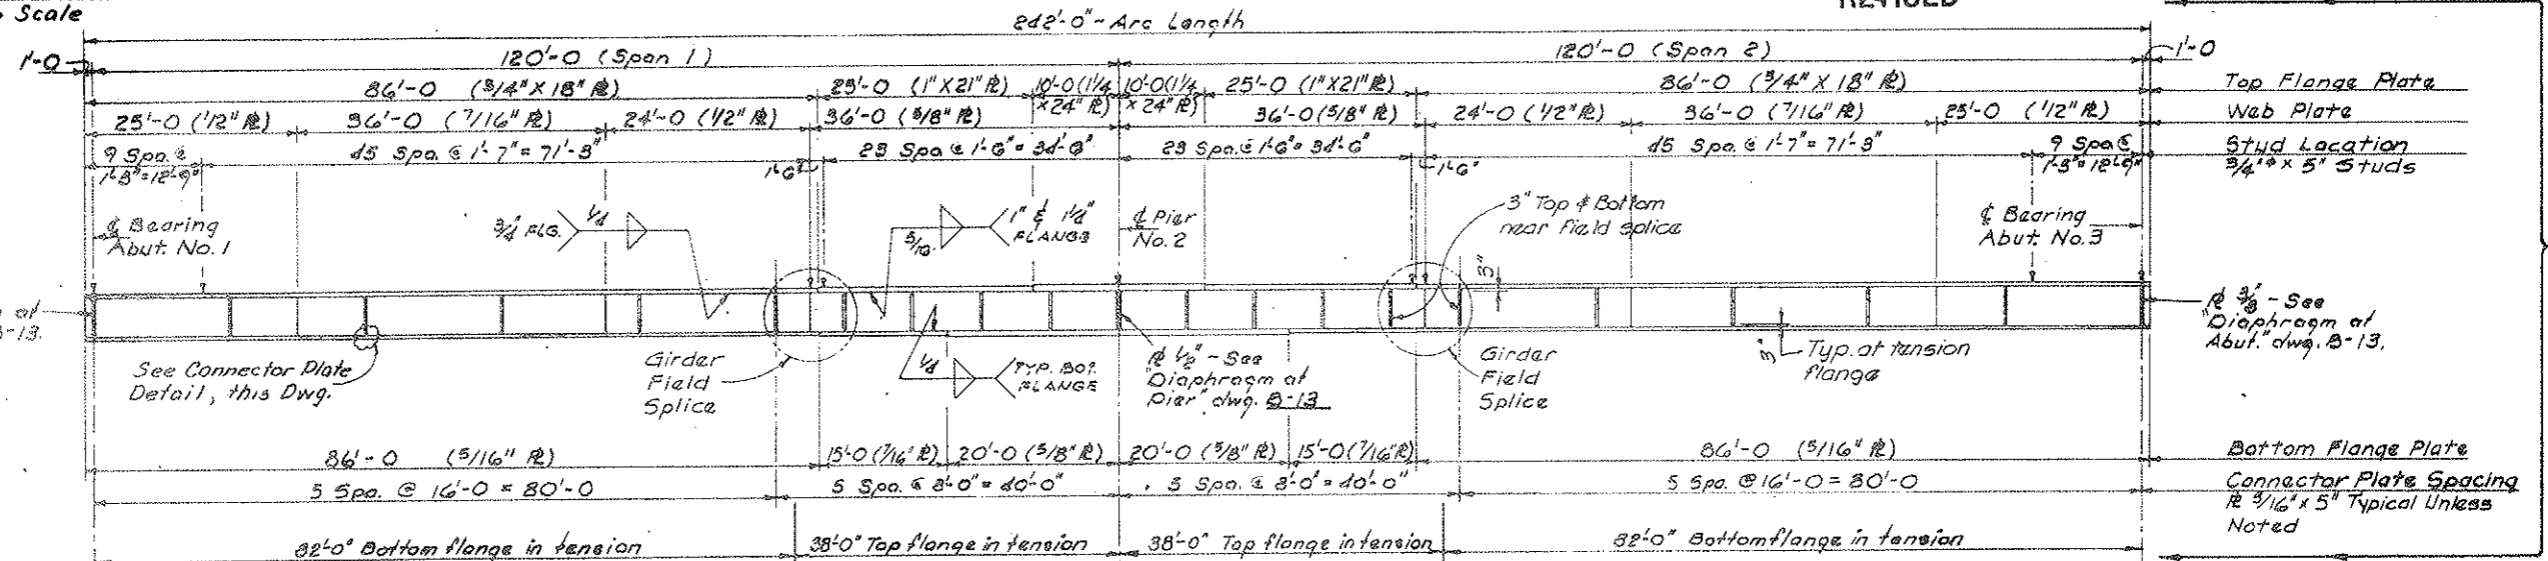 Scale
REVISED
242'-0" ~ Arc Length
1'-0 120'-0 (Span 1) 120'-0 (Span 2) 1'-0
86'-0 (3/4" X 18" ℄) 25'-0 (1" X 21" ℄) 10'-0 (1 1/4 x 24" ℄) 10'-0 (1 1/4 x 24" ℄) 25'-0 (1" X 21" ℄) 86'-0 (3/4" X 18" ℄) Top Flange Plate
25'-0 (1/2" ℄) 36'-0 (7/16" ℄) 24'-0 (1/2" ℄) 36'-0 (5/8" ℄) 36'-0 (5/8" ℄) 24'-0 (1/2" ℄) 36'-0 (7/16" ℄) 25'-0 (1/2" ℄) Web Plate
9 Spa. @ 1'-5" = 12'-9" 45 Spa. @ 1'-7" = 71'-3" 1'-6" 23 Spa. @ 1'-6" = 34'-6" 23 Spa. @ 1'-6" = 34'-6" 1'-6" 45 Spa. @ 1'-7" = 71'-3" 9 Spa @ 1'-5" = 12'-9" Stud Location
3/4" ϕ x 5" Studs
℄ Bearing
Abut. No. 1
3/4 FLG. 1/4
5/16 1" & 1 1/4"
FLANGE
℄ Pier
No. 2
3" Top & Bottom
near field splice
3"
℄ Bearing
Abut. No. 3
at
B-13.
See Connector Plate
Detail, this Dwg.
Girder
Field
Splice
1/4 TYP. BOT.
FLANGE
℄ 1/2" - See
"Diaphragm at
Pier" dwg. B-13
Girder
Field
Splice
3" Typ. at tension
flange
℄ 3/8 - See
"Diaphragm at
Abut." dwg. B-13.
86'-0 (5/16" ℄) 15'-0 (7/16" ℄) 20'-0 (5/8" ℄) 20'-0 (5/8" ℄) 15'-0 (7/16" ℄) 86'-0 (5/16" ℄) Bottom Flange Plate
5 Spa. @ 16'-0 = 80'-0 5 Spa. @ 8'-0" = 40'-0" 5 Spa. @ 8'-0" = 40'-0" 5 Spa. @ 16'-0 = 80'-0 Connector Plate Spacing
℄ 5/16" x 5" Typical Unless
Noted
82'-0" Bottom flange in tension 38'-0" Top flange in tension 38'-0" Top flange in tension 82'-0" Bottom flange in tension